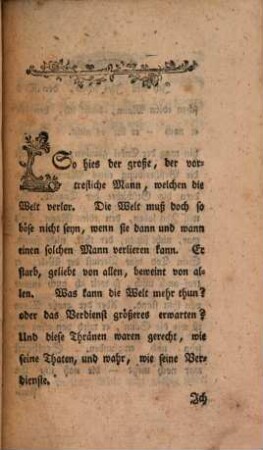 So hies der große, der vor-
trefliche Mann, welchen die
Welt verlor. Die Welt muß doch so
böse nicht seyn, wenn sie dann und wann
einen solchen Mann verlieren kann. Er
starb, geliebt von allen, beweint von al-
len. Was kann die Welt mehr thun?
oder das Verdienst größeres erwarten?
Und diese Thränen waren gerecht, wie
seine Thaten, und wahr, wie seine Ver-
dienste.
Ich